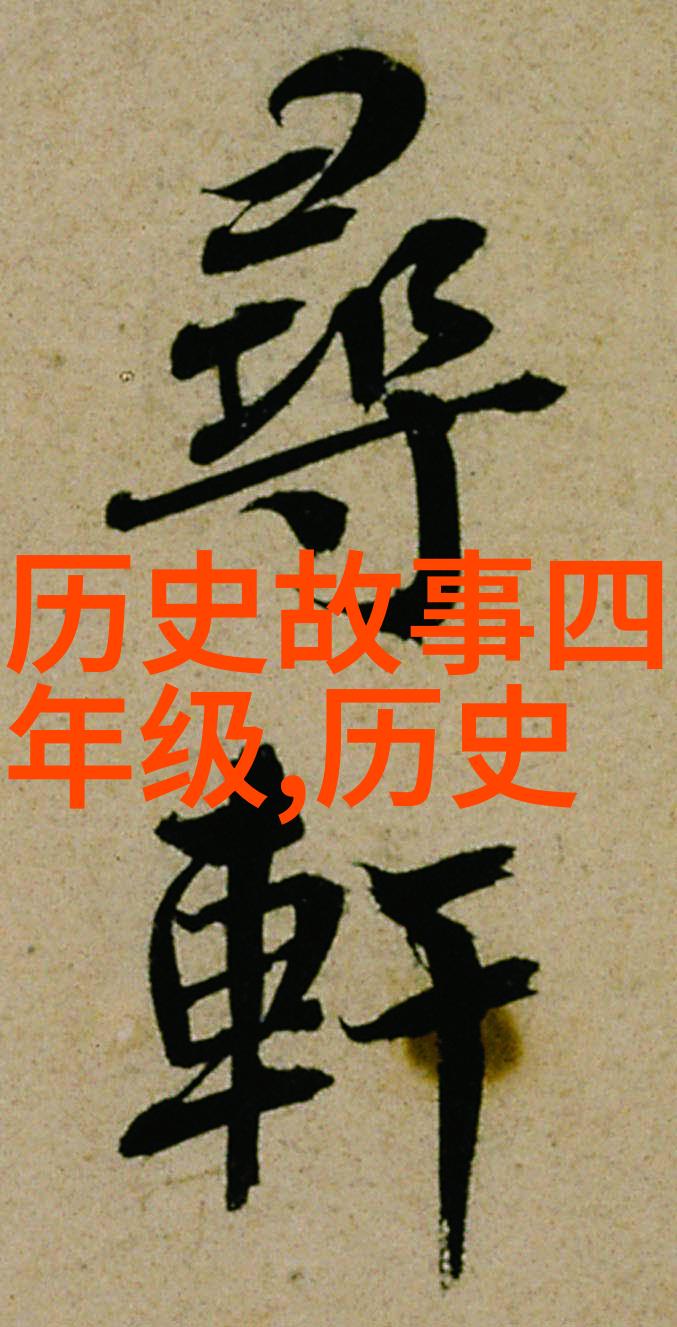 尋
軒
历史故事四
年级,历史